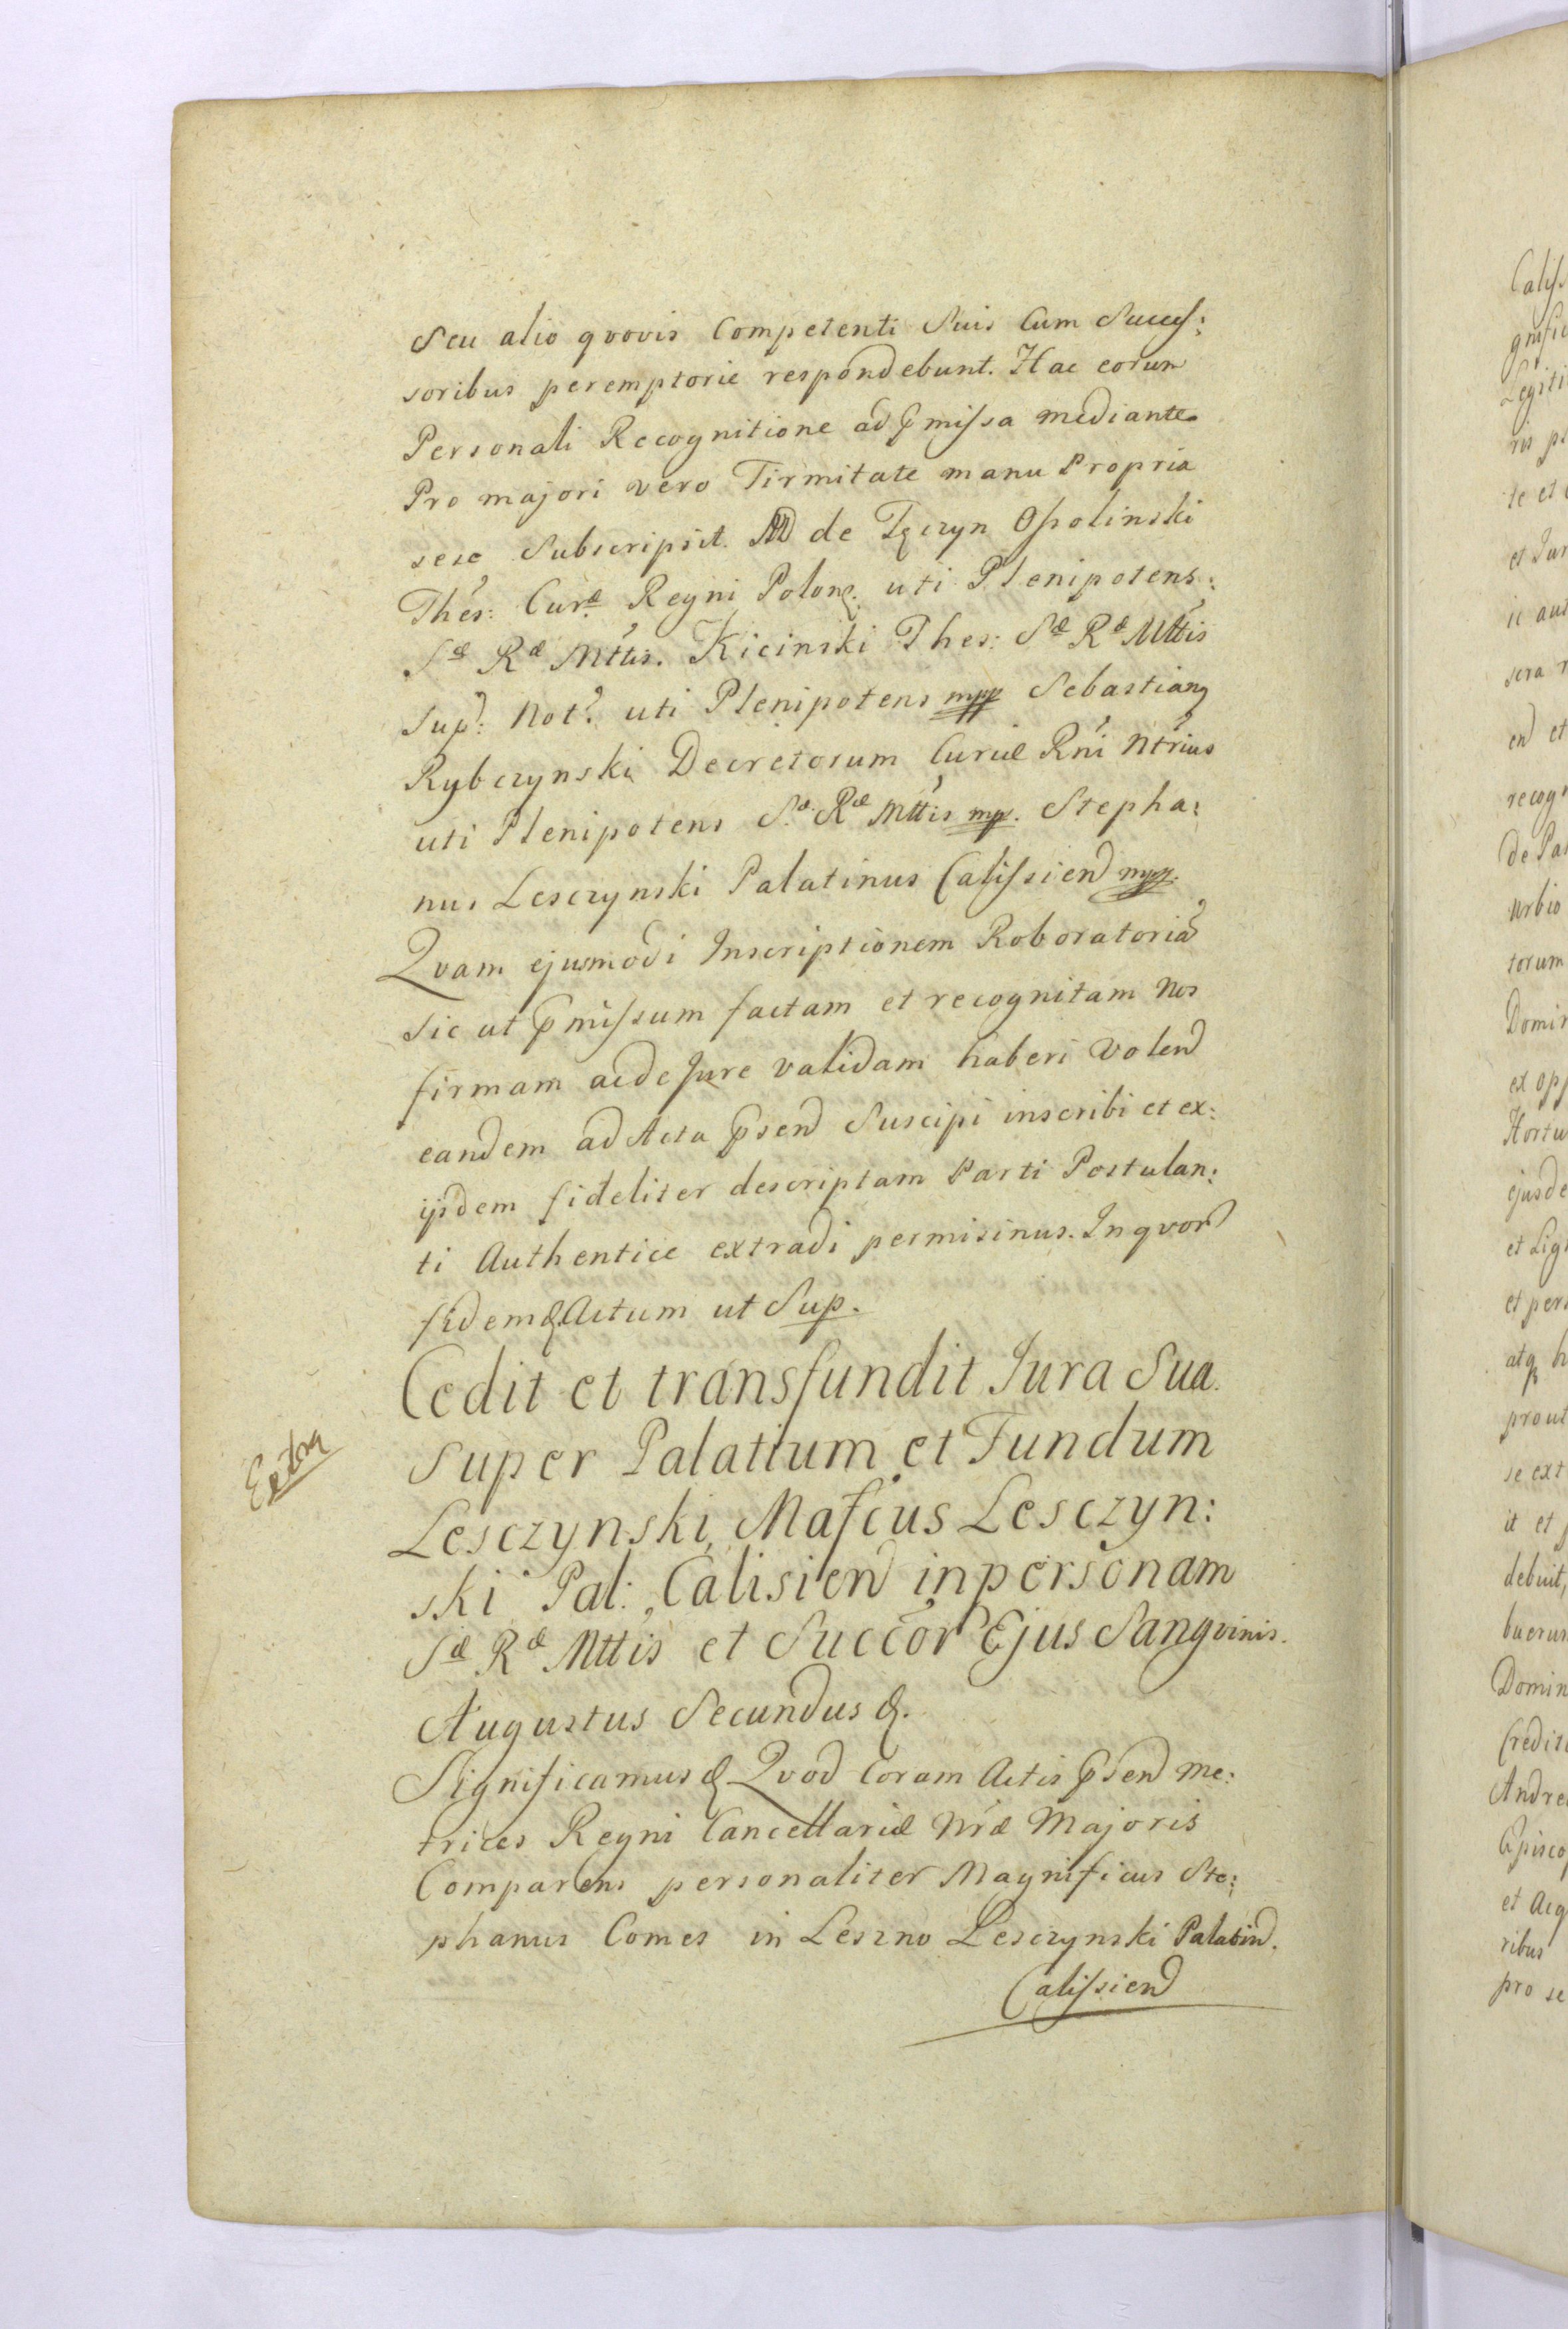 Seu alio qvovis Competenti Suis Cum Succes:
soribus peremptorie respondebunt. Hac eorum
Personali Recognitione ad pmissa mediante
Pro majori vero Firmitate manu Propria
sese Subscripsit. de Tęczyn Ossolinski
Thes: Curæ Regni Polon. uti Plenipotens:
Sæ Ræ Mttis. Kicinski Thes: Sæ Ræ Mttis
Sup: Not. uti Plenipotens mpp Sebastian9
Rybczynski Decretorum Curiæ Rni Ntrius
uti Plenipotens Sæ Ræ Mttis mp. Stepha:
nus Lesczynski Palatinus Calissien mpp.
Qvam ejusmodi Inscriptionem Roboratoria
sic ut pmissum factam et recognitam Nos
firmam ac de Jure validam haberi volen
eandem ad Acta psen Suscipi inscribi et ex:
ijsdem fideliter descriptam Parti Postulan:
ti Authentice extradi permisimus. In qvor
fidem & Actum ut Sup.
Cedit et transfundit Jura Sua
Super Palatium et Fundum
Lesczynski, Mafcus Lesczyn:
ski Pal: Calisien in personam
Sæ Ræ Mttis et Succor Ejus Sangvinis.
Extra
Augustus Secundus &.
Significamus & Qvod Coram Actis psen Me:
trices Regni Cancellariæ Nræ Majoris
Comparens personaliter Magnificus Ste:
phanus Comes in Leszno Lesczynski Palatin.
Calissien